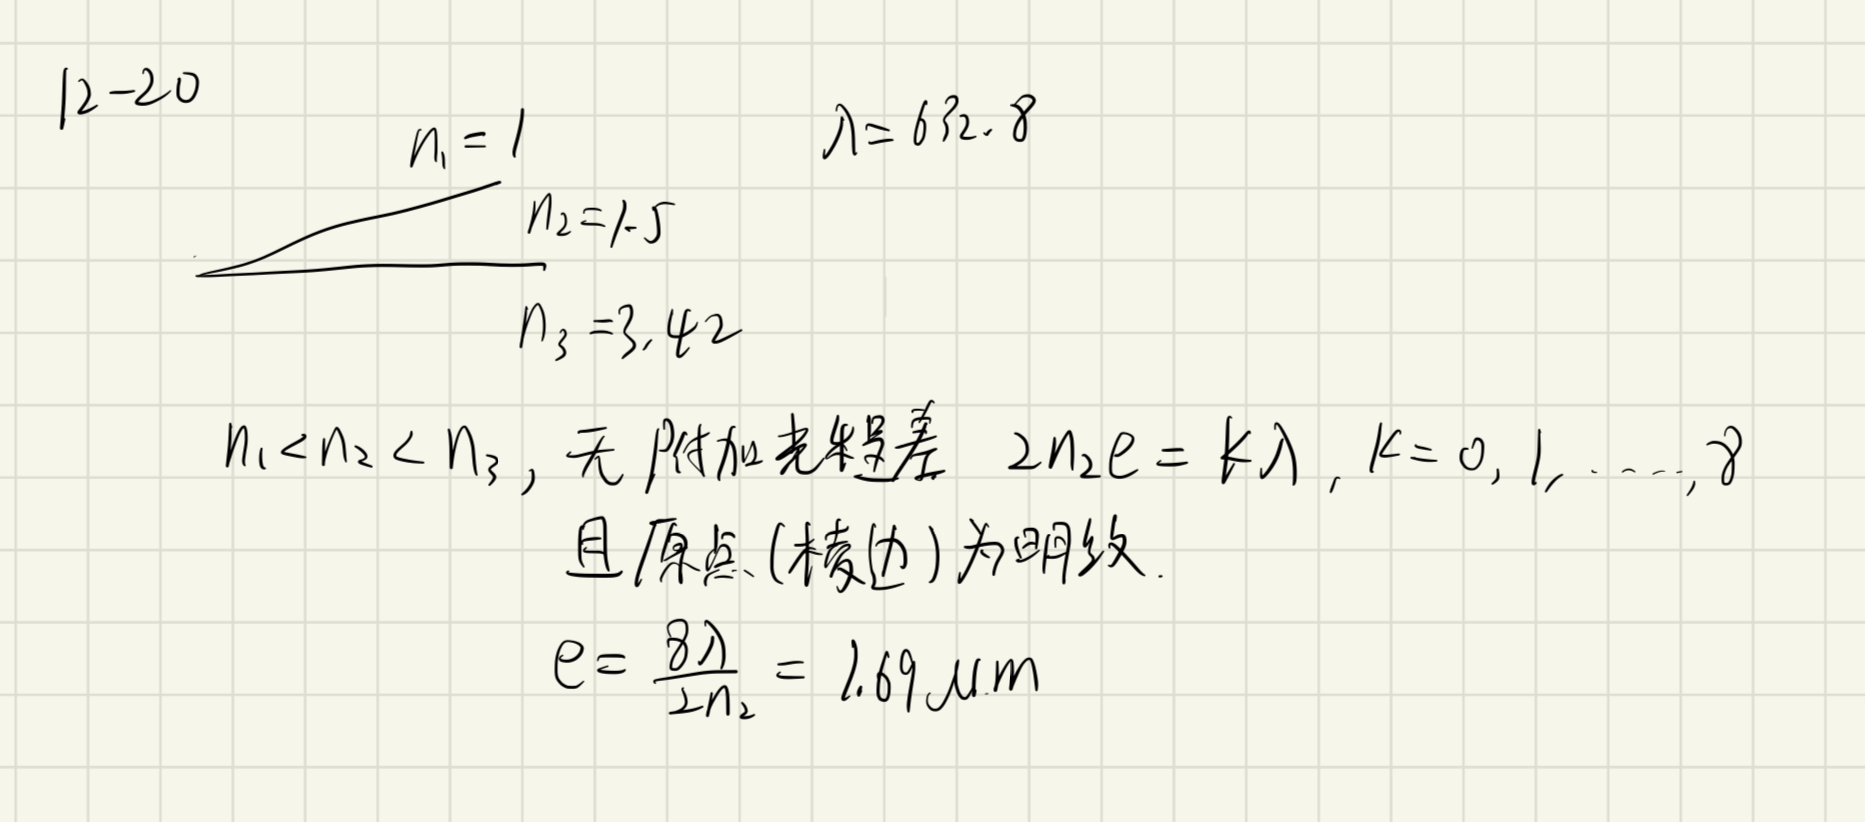 12-20
n₁ = 1
λ = 632.8
n₂ = 1.5
n₃ = 3.42
n₁ < n₂ < n₃, 无附加光程差 2n₂e = kλ, k = 0, 1, ……, 8
且原点(棱边)为明纹.
e = 8λ/2n₂ = 1.69 μm